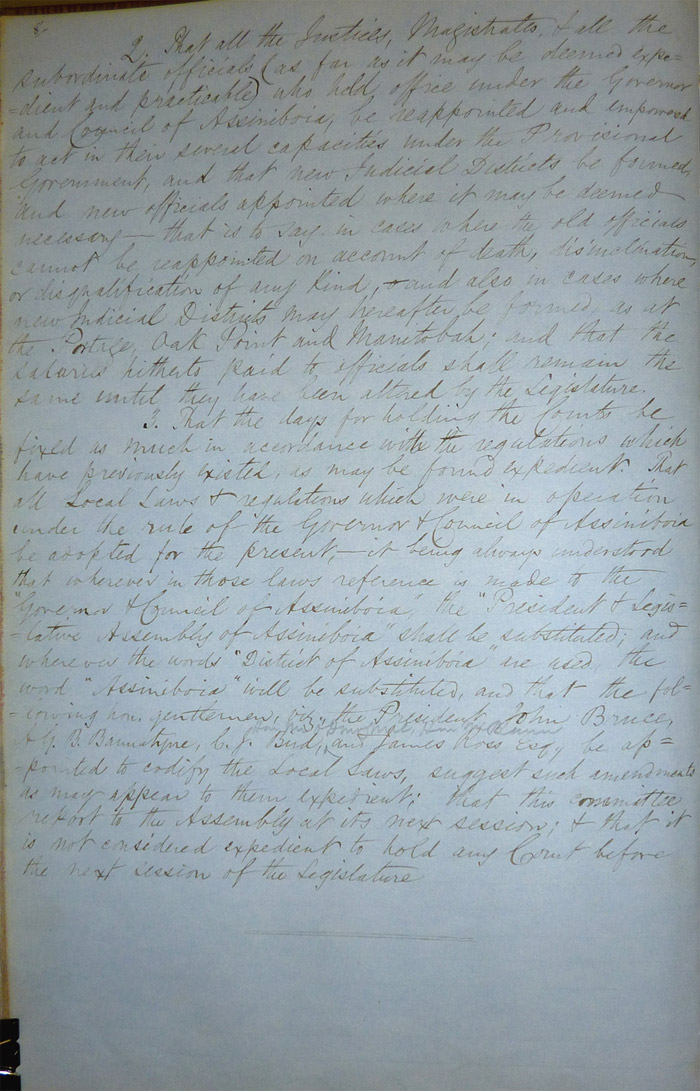 8
2. That all the Justices, Magistrates, & all the
subordinate officials (as far as it may be deemed expe=
=dient and practicable) who held office under the Governor
and Council of Assiniboia, be reappointed and empowered
to act in their several capacities under the Provisional
Government, and that new Judicial Districts be formed,
and new officials appointed where it may be deemed
necessary — that is to say in cases where the old officials
cannot be reappointed on account of death, disinclination,
or disqualification of any kind, & and also in cases where
new Judicial Districts may hereafter be formed, as at
the Portage, Oak Point and Manitobah; and that the
salaries hitherto paid to officials shall remain the
same until they have been altered by the Legislature.
3. That the days for holding the Courts be
fixed as much in accordance with the regulations which
have previously existed, as may be found expedient. That
all Local Laws & regulations which were in operation
under the rule of the Governor & Council of Assiniboia
be adopted for the present, — it being always understood
that wherever in those laws reference is made to the
"Governor & Council of Assiniboia", the "President & Legis=
=lative Assembly of Assiniboia" shall be substituted; and
wherever the words "District of Assiniboia" are used, the
word "Assiniboia" will be substituted, and that the fol=
=lowing hon. gentlemen, viz., the President, John Bruce,
A. G. B. Bannatyne, C. J. Bird, and James Ross Esq, be ap=
=pointed to codify the Local Laws, suggest such amendments
as may appear to them expedient; that this committee
report to the Assembly at its next session; & that it
is not considered expedient to hold any Court before
the next session of the Legislature